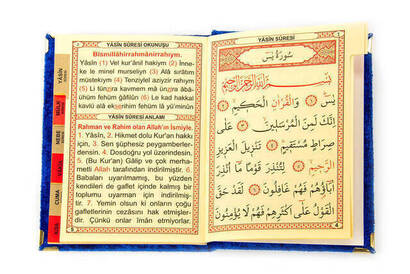 YÂSİN SÛRESİ OKUNUŞU
Bismillâhirrahmânirrahîym.
Yâsîn (1) Vel kur'ânil hakiym (2) İnne-
ke le minel murseliyn (3) Alâ sırâtım
müstekıym (4) Tenziylel aziyzir rahiym
(5) Li tünzira kavmem mâ ünzira âbâ-
ühüm fehüm ğâfilûn (6) Le kad hakkal
kavlü alâ ekserihim fehüm lâ yü'minûn
YÂSİN SÛRESİ ANLAMI
Rahman ve Rahim olan Allah'ın İsmiyle.
1. Yâsîn, 2. Hikmet dolu Kur'an hakkı
için, 3. Sen şüphesiz peygamberler-
densin. 4. Dosdoğru yol üzerindesin.
5. (Bu Kur'an) Gâlip ve çok merha-
metli Allah tarafından indirilmiştir. 6.
Babaları uyarılmamış, bu yüzden
kendileri de gaflet içinde kalmış bir
toplumu uyarman için indirilmiş-
tir. 7. Yemin olsun ki onların çoğu
gafletlerinin cezasını hak etmişler-
dir. Çünkü onlar îman etmiyorlar.
YÂSİN
MÜLK
NEBE
CUMA
YÂSİN SÛRESİ
سُورَةُ يٰسٓ
بِسْمِ اللّٰهِ الرَّحْمٰنِ الرَّحِيمِ
يٰسٓ ﴿١﴾ وَالْقُرْاٰنِ الْحَكِيمِ ﴿٢﴾
اِنَّكَ لَمِنَ الْمُرْسَلِينَ ﴿٣﴾ عَلٰى
صِرَاطٍ مُسْتَقِيمٍ ﴿٤﴾ تَنْزِيلَ الْعَزِيزِ
الرَّحِيمِ ﴿٥﴾ لِتُنْذِرَ قَوْمًا مَٓا اُنْذِرَ
اٰبَٓاؤُ۬هُمْ فَهُمْ غَافِلُونَ ﴿٦﴾ لَقَدْ حَقَّ
الْقَوْلُ عَلٰٓى اَكْثَرِهِمْ فَهُمْ لَا يُؤْمِنُونَ